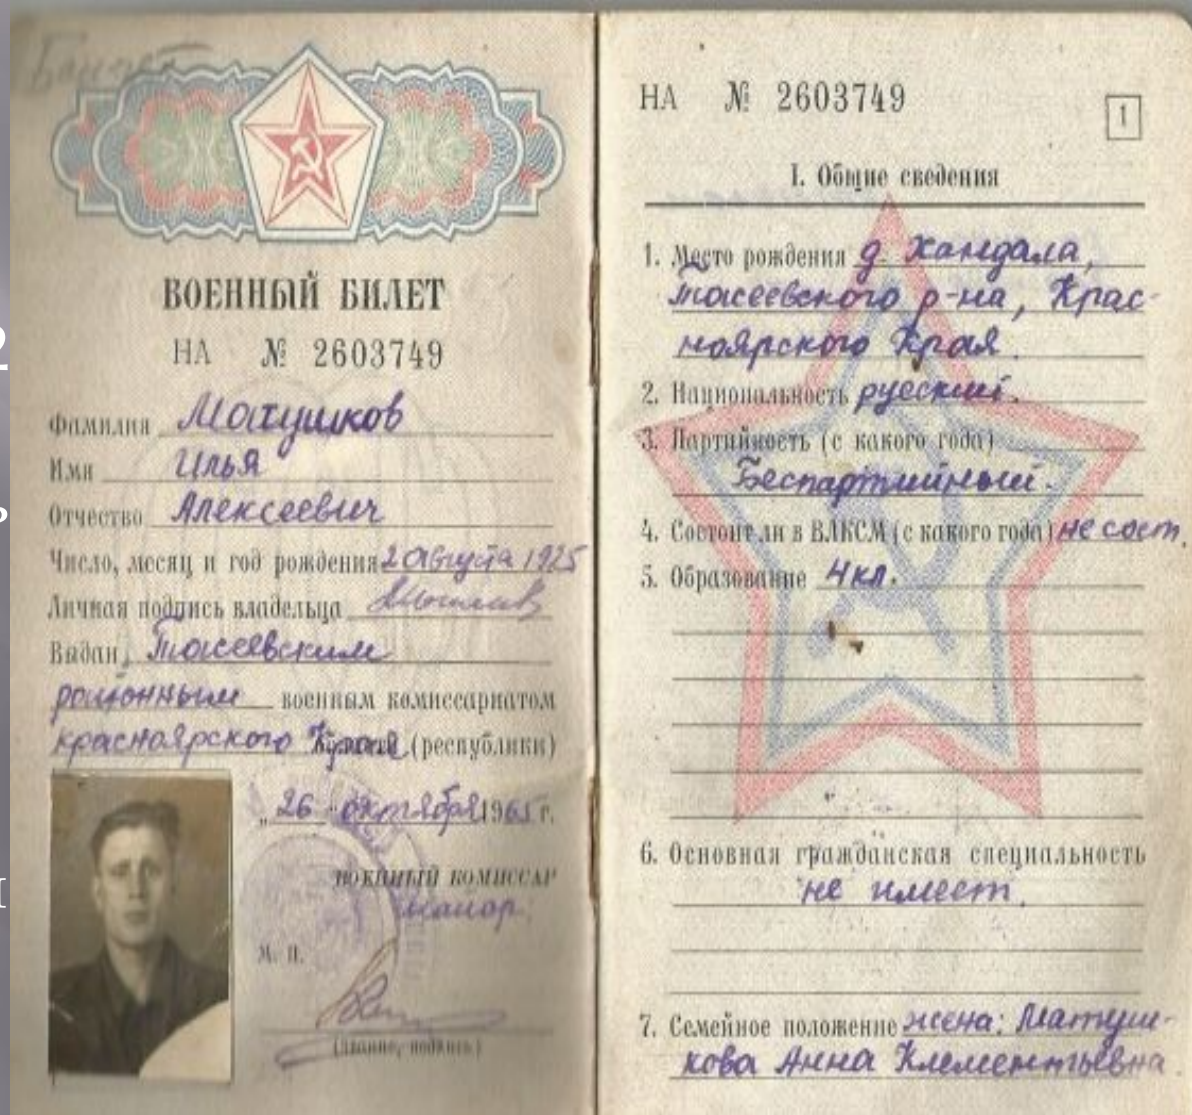 ВОЕННЫЙ БИЛЕТ
НА № 2603749
Фамилия Матушков
Имя Илья
Отчество Алексеевич
Число, месяц и год рождения 2 августа 1925
Личная подпись владельца
Выдан Тасеевским
районным военным комиссариатом
Красноярского Края (республики)
„26" октября 1965 г.
ВОЕННЫЙ КОМИССАР
майор
М. П.
(звание, подпись)
НА № 2603749
1
I. Общие сведения
1. Место рождения д. Хандала,
Тасеевского р-на, Крас-
ноярского Края.
2. Национальность русский.
3. Партийность (с какого года)
Беспартийный.
4. Состоит ли в ВЛКСМ (с какого года) не сост.
5. Образование 4 кл.
6. Основная гражданская специальность
не имеет.
7. Семейное положение жена: Матуш-
кова Анна Клементьевна.